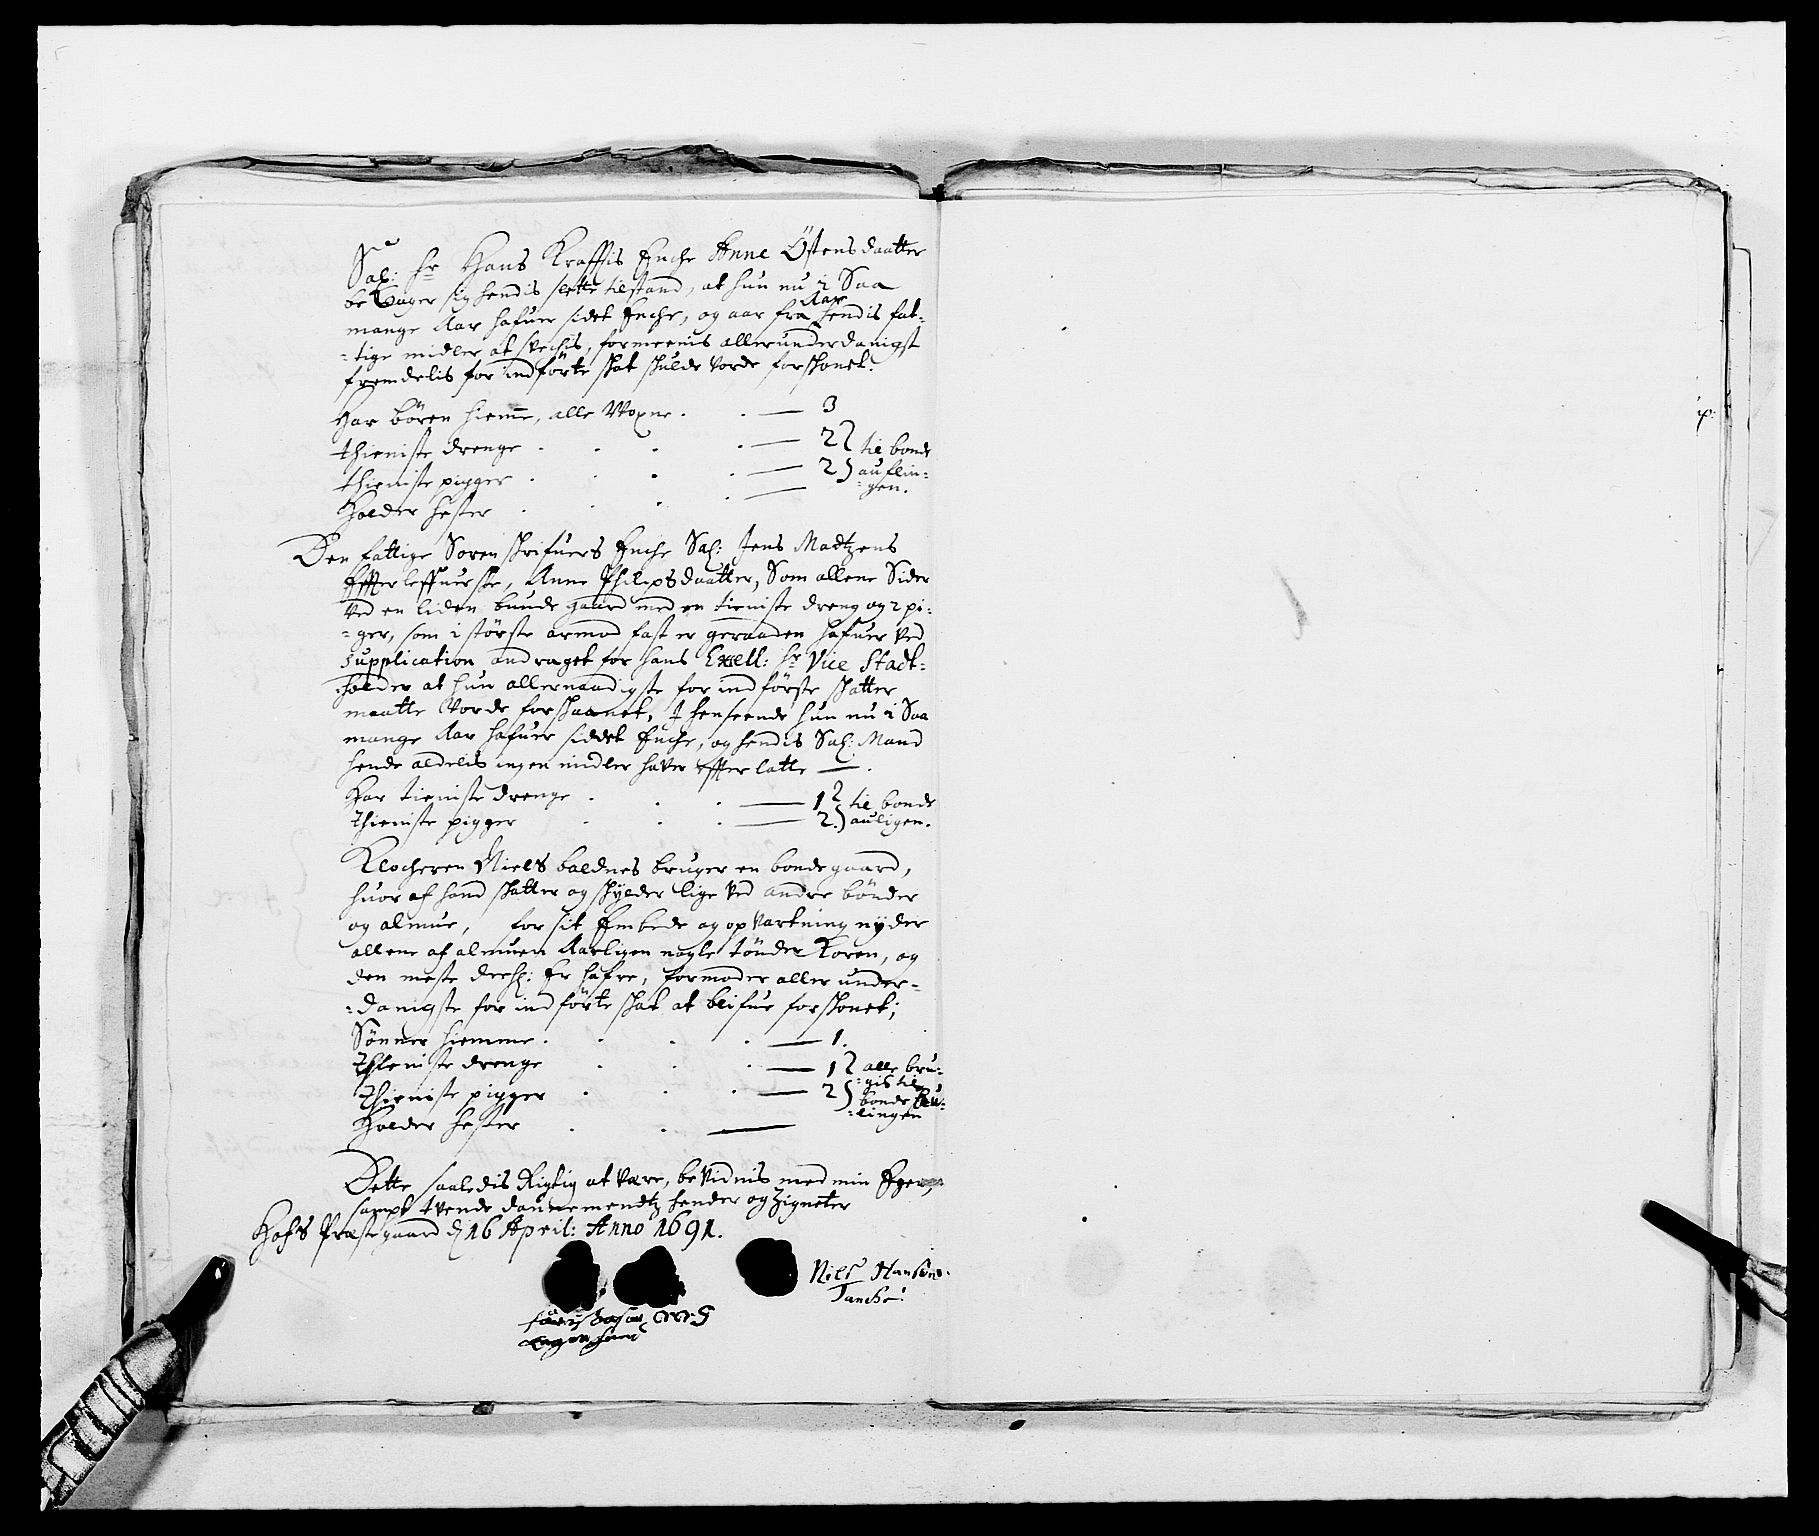 Sal: hr Hans Kraffis Enche Anne Östensdaatter
beklager sig hendis slette tilstand, at hun nu i Saa
mange Aar hafuer sidet Enche, og aar fra Aar hendis fat-
-tige midler at svechis, formeenis allerunderdanigst
fremdelis for indförte skat skulde vorde forskonet.
Har bören hiemme, alle Woxne. . — 3
thieniste drenge . . . . — 2 } til bonde
thieniste pigger . . . . — 2 } auflin-
-gen.
Holder hester . . . . —
Den fattige Soren skrifuers Enche Sal: Jens Madtzens
Effterleffuerske, Anne Philipsdaatter, Som allene Sider
ved en liden bunde gaard med en tieniste dreng og 2 pi-
-ger, som i störste armod fast er geraaden hafuer ved
supplication andraget for hans Excell: hr Vice Stadt-
holder at hun allernaadigste for indförste skatter
maatte Vorde forskaanet, I henseende hun nu i Saa
mange Aar hafuer siddet Enche, og hendis Sal: Mand
hende aldelis ingen midler haver effterlatt — .
Har tieniste drenge . . . — 1 } til bonde
thieniste pigger . . . — 2. } auligen.
Klocheren Niels baldnes bruger en bondegaard,
huor af hand skatter og skylder lige ved andre bönder
og almue, for sit Embede og opvartning nyder
allene af almuen Aarligen nogle tönder Koren, og
den meste deel: Er hafre, formoder aller under-
-danigste for indförte skat at blifue forskonet;
Sönner hiemme . . . . — 1.
Thieniste drenge . . . — 1 } alle bru-
-gis til
Thieniste pigger . . . — 2 } bonde au-
-lingen
Holder hester . . —
Dette saaledis Rigtig at være, bevidnis med min Egen,
sampt tvende dannemendtz hender og Zigneter
Hofs Præstegaard d 16 April: Anno 1691.
Niels Hansøn
Tanche!
egen hand